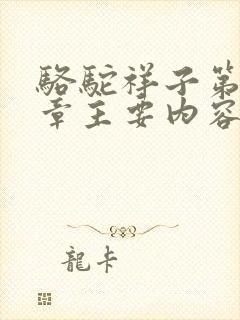 駱駝祥子第
章主要内容
龍卡